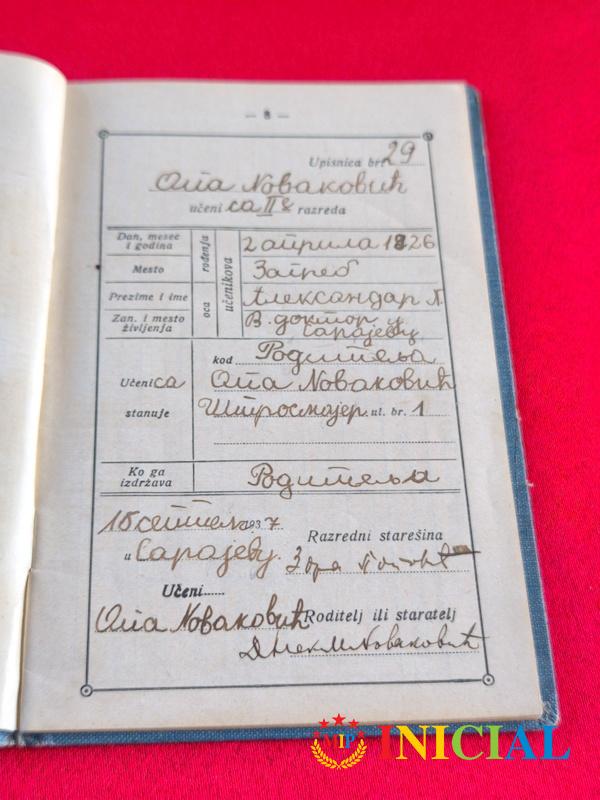 — 8 —
Upisnica br. 29
Ота Новаковић
učeni са II8 razreda
Dan, mesec i godina
rođenja
učenikova
2 априла 1926
Mesto
Загреб
Prezime i ime
oca
Александар Н.
Zan. i mesto življenja
В. доктор у
Сарајеву
kod Родитеља
Učeniса Ота Новаковић
stanuje Штросмајер. ul. br. 1
Ko ga izdržava
Родитеља
15 септем. 1937
u Сарајеву.
Razredni starešina
Зора
Učeni
Ота Новаковић
Roditelj ili staratelj
Новаковић
VIP INICIAL